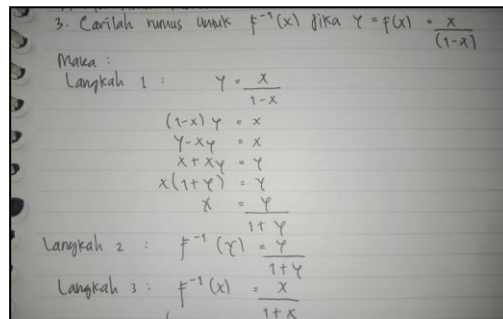 3. Carilah rumus untuk f⁻¹(x) jika y = f(x) = x/(1-x)
Maka :
Langkah 1 : y = x/1-x
(1-x) y = x
y-xy = x
x + xy = y
x(1+y) = y
x = y/1+y
Langkah 2 : f⁻¹ (y) = y/1+y
Langkah 3 : f⁻¹ (x) = x/1+x